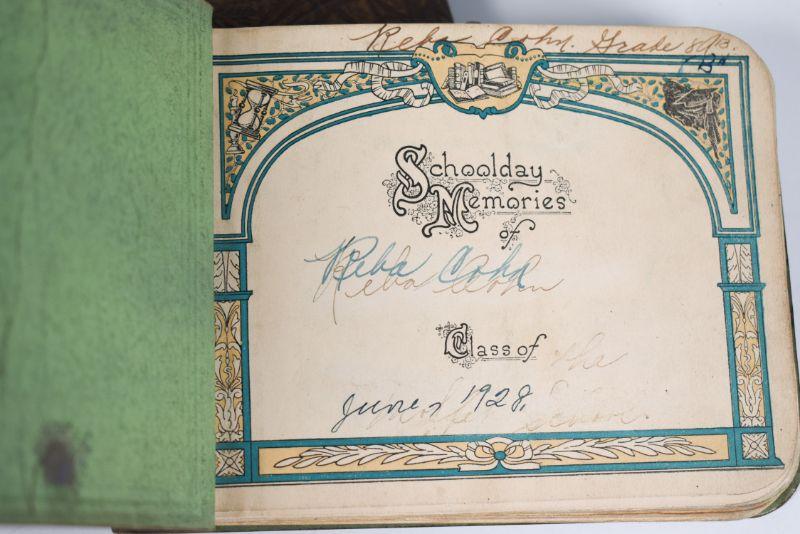 Reba Cohn. Grade 8B.
"B"
Schoolday
Memories
of
Reba Cohn
Reba Cohn
Class of the
June, 1928.
School.